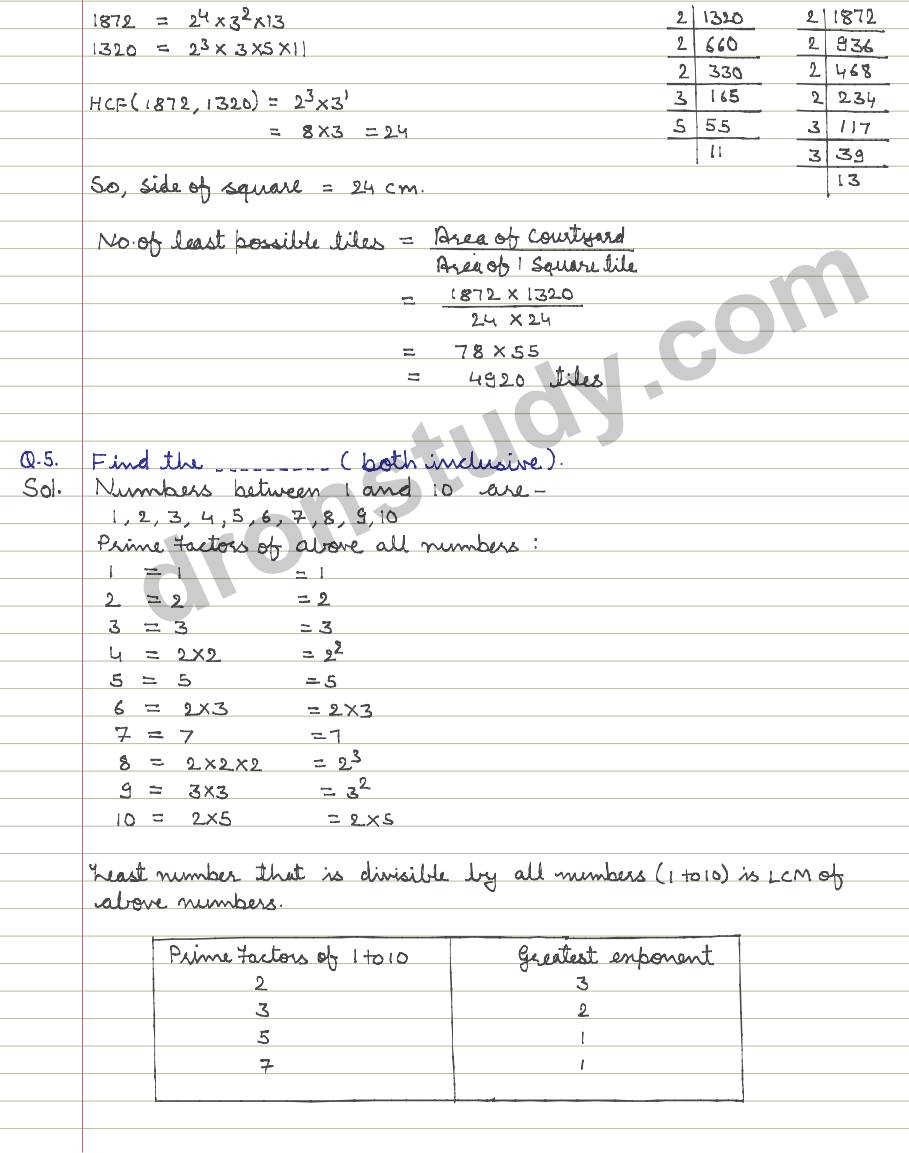 1872 = 2⁴ × 3² × 13
1320 = 2³ × 3 × 5 × 11
HCF (1872, 1320) = 2³ × 3¹
= 8 × 3 = 24
So, side of square = 24 cm.
2 | 1320
2 | 660
2 | 330
3 | 165
5 | 55
| 11
2 | 1872
2 | 936
2 | 468
2 | 234
3 | 117
3 | 39
| 13
No. of least possible tiles = Area of Courtyard
Area of 1 Square tile
= 1872 × 1320
24 × 24
= 78 × 55
= 4920 tiles
Q.5. Find the --------- (both inclusive).
Sol. Numbers between 1 and 10 are –
1, 2, 3, 4, 5, 6, 7, 8, 9, 10
Prime Factors of above all numbers :
1 = 1 = 1
2 = 2 = 2
3 = 3 = 3
4 = 2×2 = 2²
5 = 5 = 5
6 = 2×3 = 2×3
7 = 7 = 7
8 = 2×2×2 = 2³
9 = 3×3 = 3²
10 = 2×5 = 2×5
Least number that is divisible by all numbers (1 to 10) is LCM of
above numbers.
Prime Factors of 1 to 10 Greatest exponent
2 3
3 2
5 1
7 1
dronstudy.com